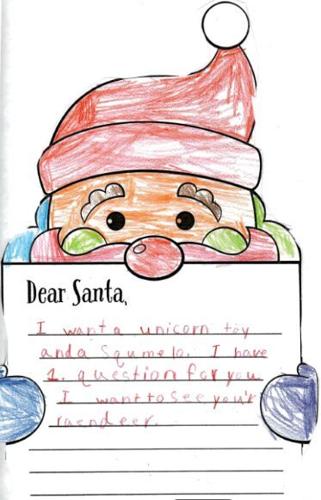 Dear Santa,
I want a unicorn toy
and a Squmelo. I have
1. question for you
I want to see your'r
raendeer.